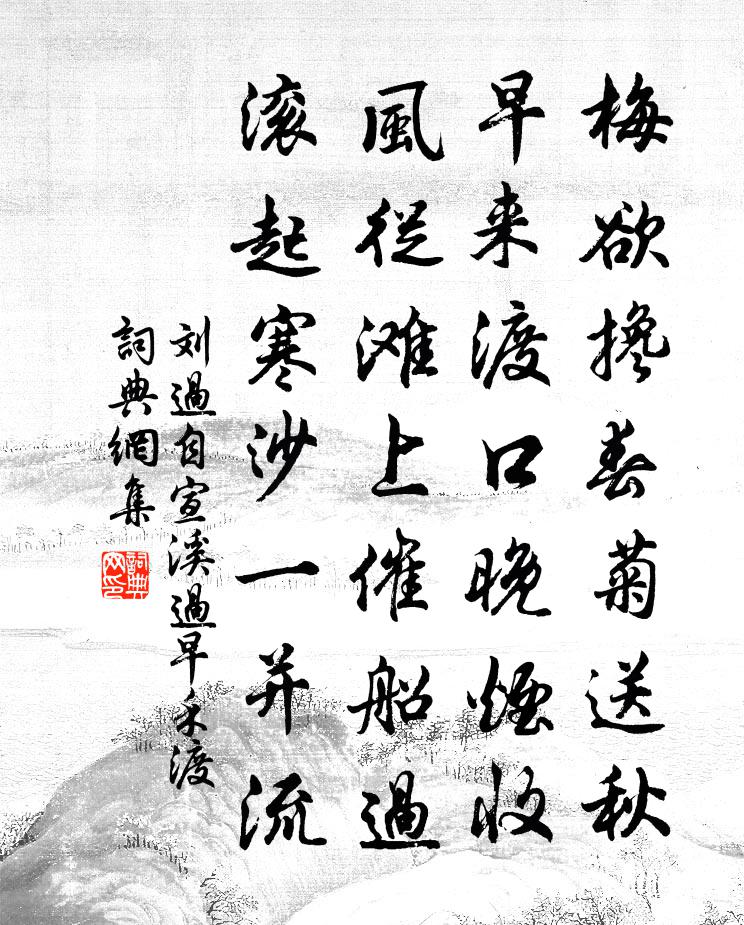 梅欲搀春菊送秋
早来渡口晚烟收
風從滩上催船過
滚起寒沙一并流
刘過自宣溪過早禾渡
詞典網集
詞典
网印